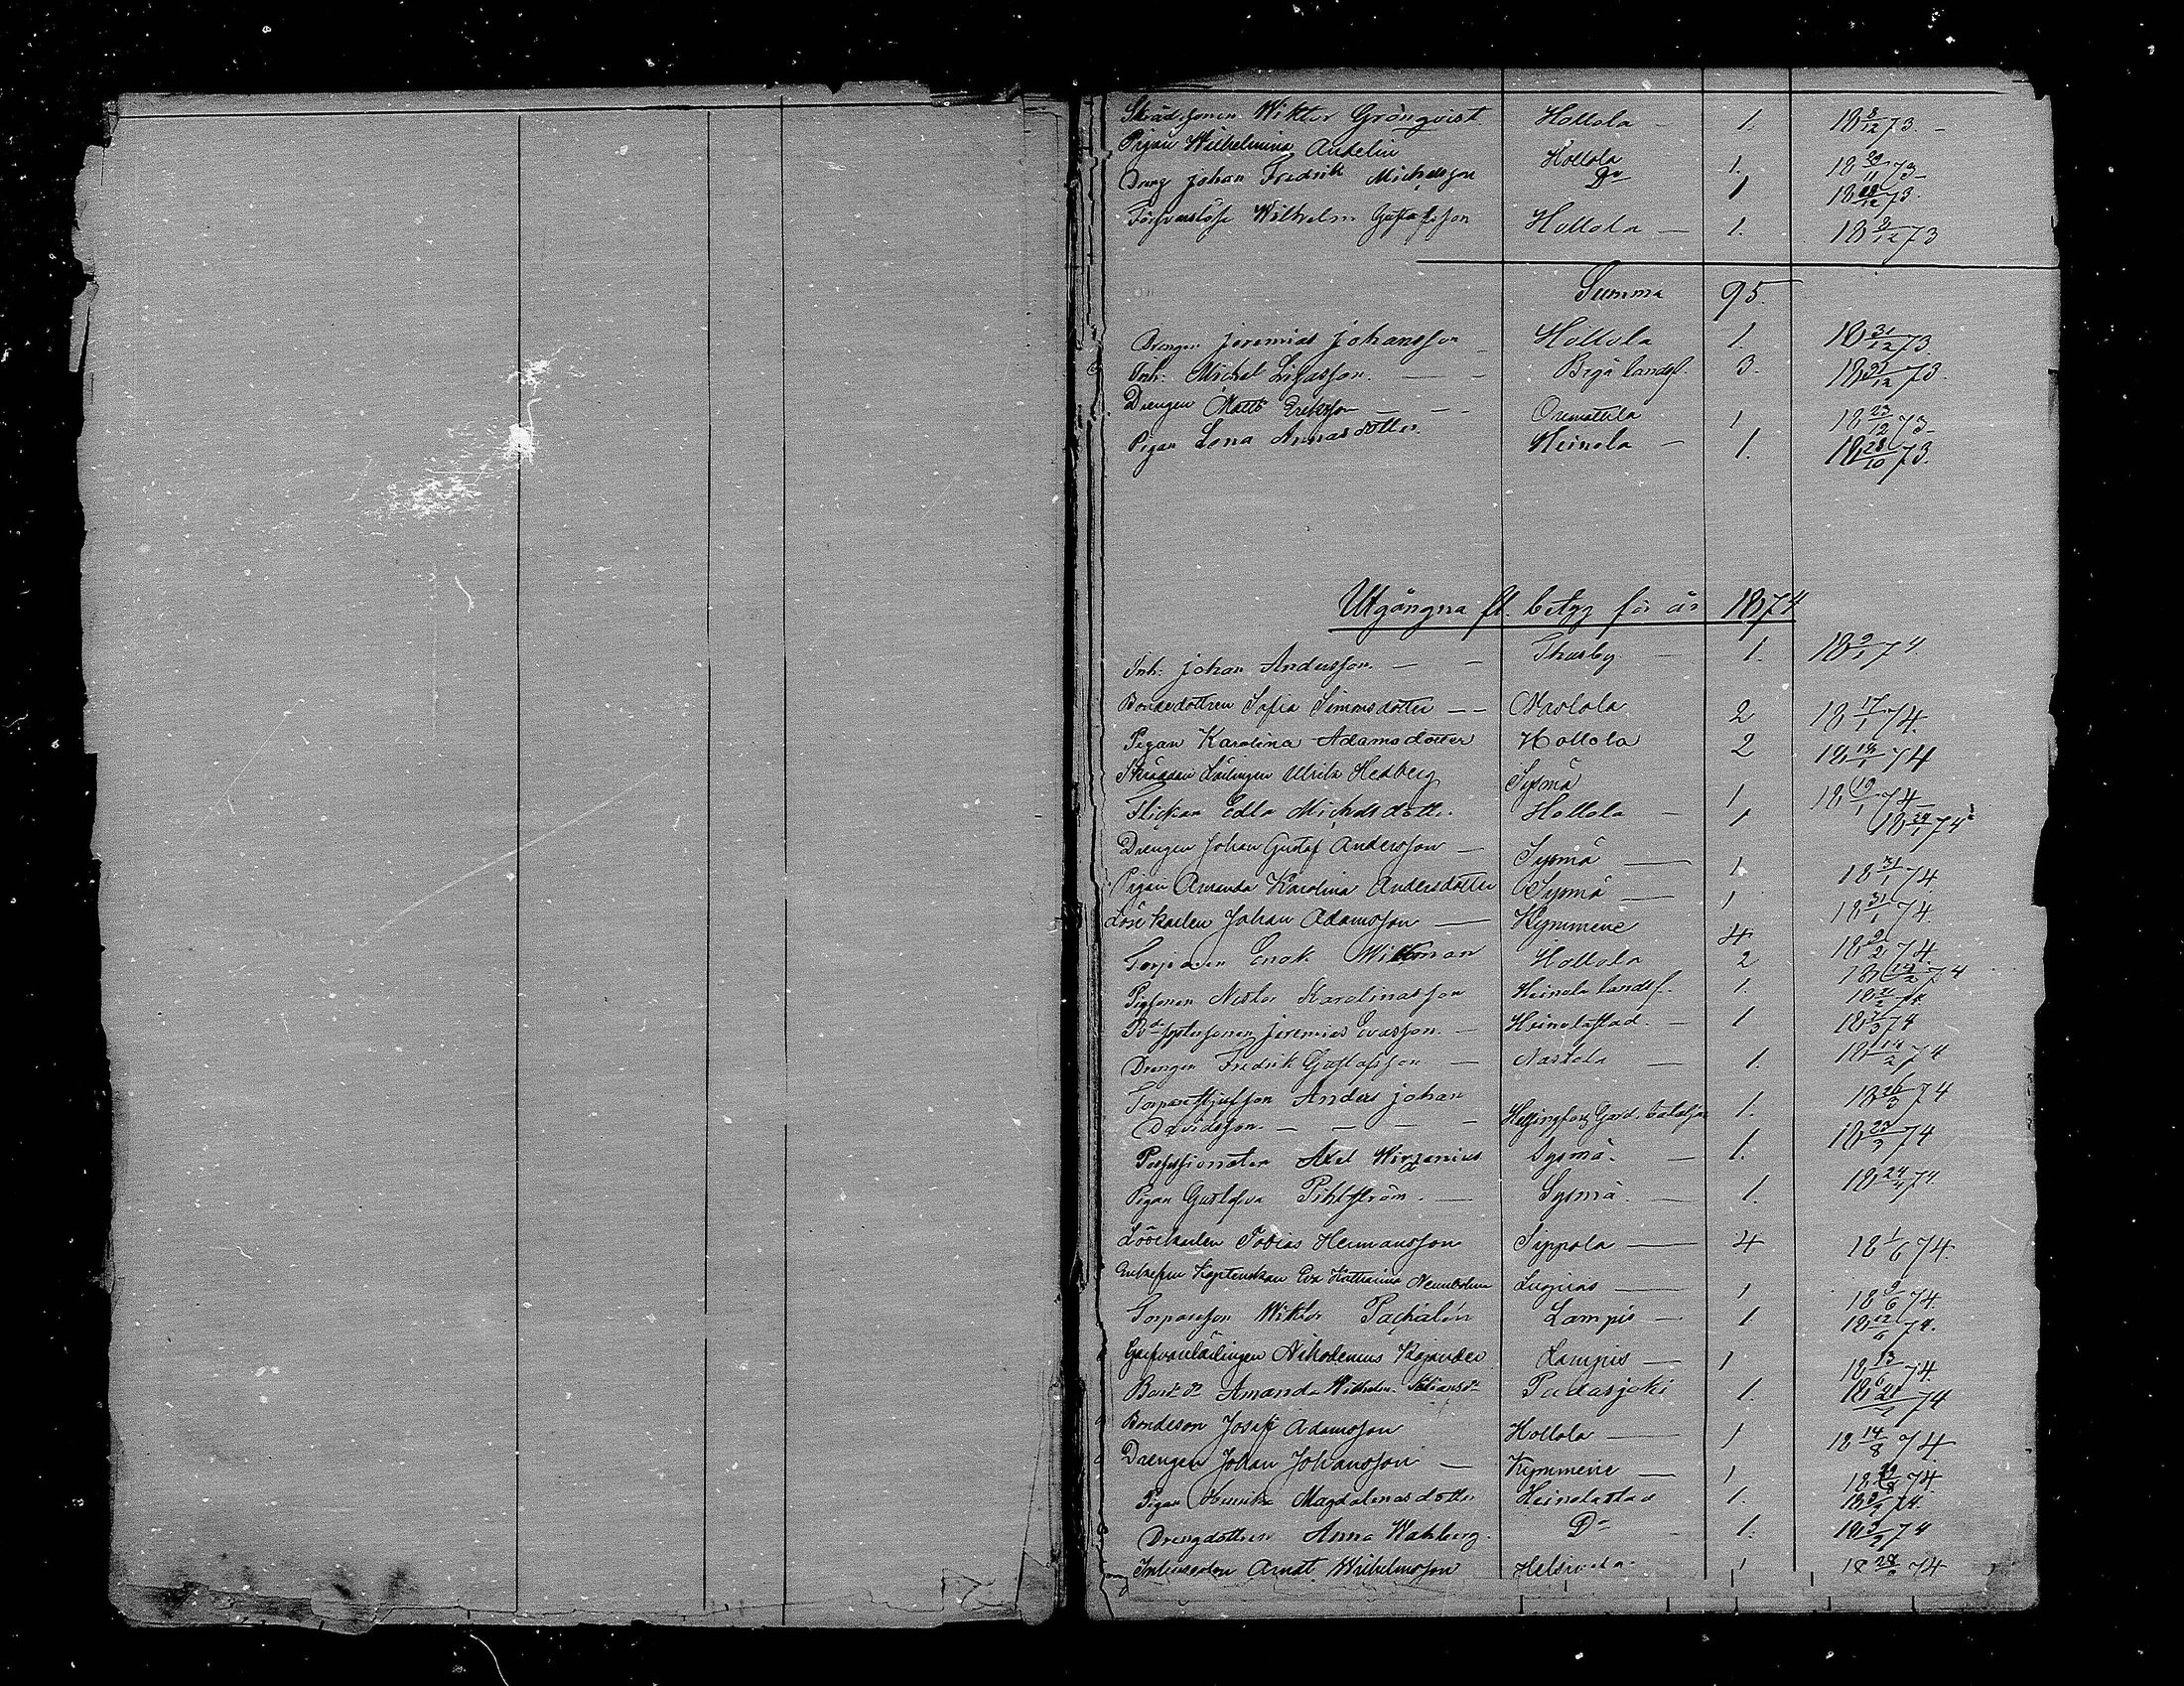 Wiktor Grönqvist Hollola 1. 18 8/12 73.
Pigan Wilhelmina Andelin Hollola 1. 18 29/11 73
Dreng Johan Fredrik Michelsson Do 1
Wilhelm Gustafsson Hollola 1. 18 9/12 73
Summa 95.
Drengen Jeremias Johansson Hollola 1. 18 31/12 73.
Inh. Michel Lisasson. 3. 18 31/12 73.
Drengen Matts Eriksson Orimattila 1 18 23/12 73
Pigan Lena Annasdotter Heinola 1. 18 28/10 73.
Utgångna fl. betyg för år 1874
Inh. Johan Andersson. Thusby 1. 18 9/1 74
Bondedottren Sofia Simonsdotter Nastola 2 18 17/1 74.
Pigan Karolina Adamsdotter Hollola 2 18 18/1 74
Lärlingen Ulrik Hedberg Sysmä 1 18 19/1 74
Flickan Edla Michelsdotter Hollola 1 18 29/1 74
Drengen Johan Gustaf Andersson Sysmä 1 18 31/1 74
Pigan Amanda Karolina Andersdotter Sysmä 1 18 31/1 74.
Löskarlen Johan Adamsson Kymmene 4 18 2/2 74.
Enok Wikman Hollola 2 18 14/2 74
Pigsonen Nestor Karolinasson Heinola landsf. 1. 18 21/2 74.
Jeremias Evasson. Heinola stad. 1 18 7/3 74
Drengen Fredrik Gustafsson Nastola 1. 18 14/2 74
Anders Johan
Davidsson. Helsingfors Gard. bataljon 1. 18 26/3 74
Possessionaten Axel Wirzenius Sysmä. 1. 18 23/3 74
Pigan Gustafva Pihlström. Sysmä. 1. 18 24/4 74.
Löskarlen Tobias Hermansson Sippola 4 18 1/6 74
Enkefru Kaptenskan Eva Katharina 1 18 9/6 74.
Torparesson Wiktor Pachalén Lampis 1 18 12/6 74.
Garfvarelärlingen Nikodemus Kajander Lampis 1 18 13/6 74.
Amanda Wilhelm. Padasjoki 1. 74
Bondeson Josef Adamsson Hollola 1 18 14/8 74.
Drengen Johan Johansson Kymmene 1 74.
Pigan Henrika Magdalenasdotter Heinola stad 1. 74.
Drengdottren Anna Wahlberg. Do 1. 18 3/9 74
Arndt Wilhelmsson 1 74